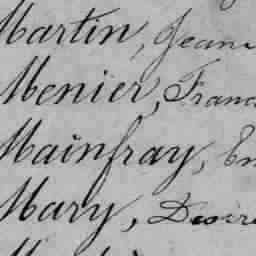 Martin, Jean
Menier, Franc
Mainfray, Em
Mary, Desiré